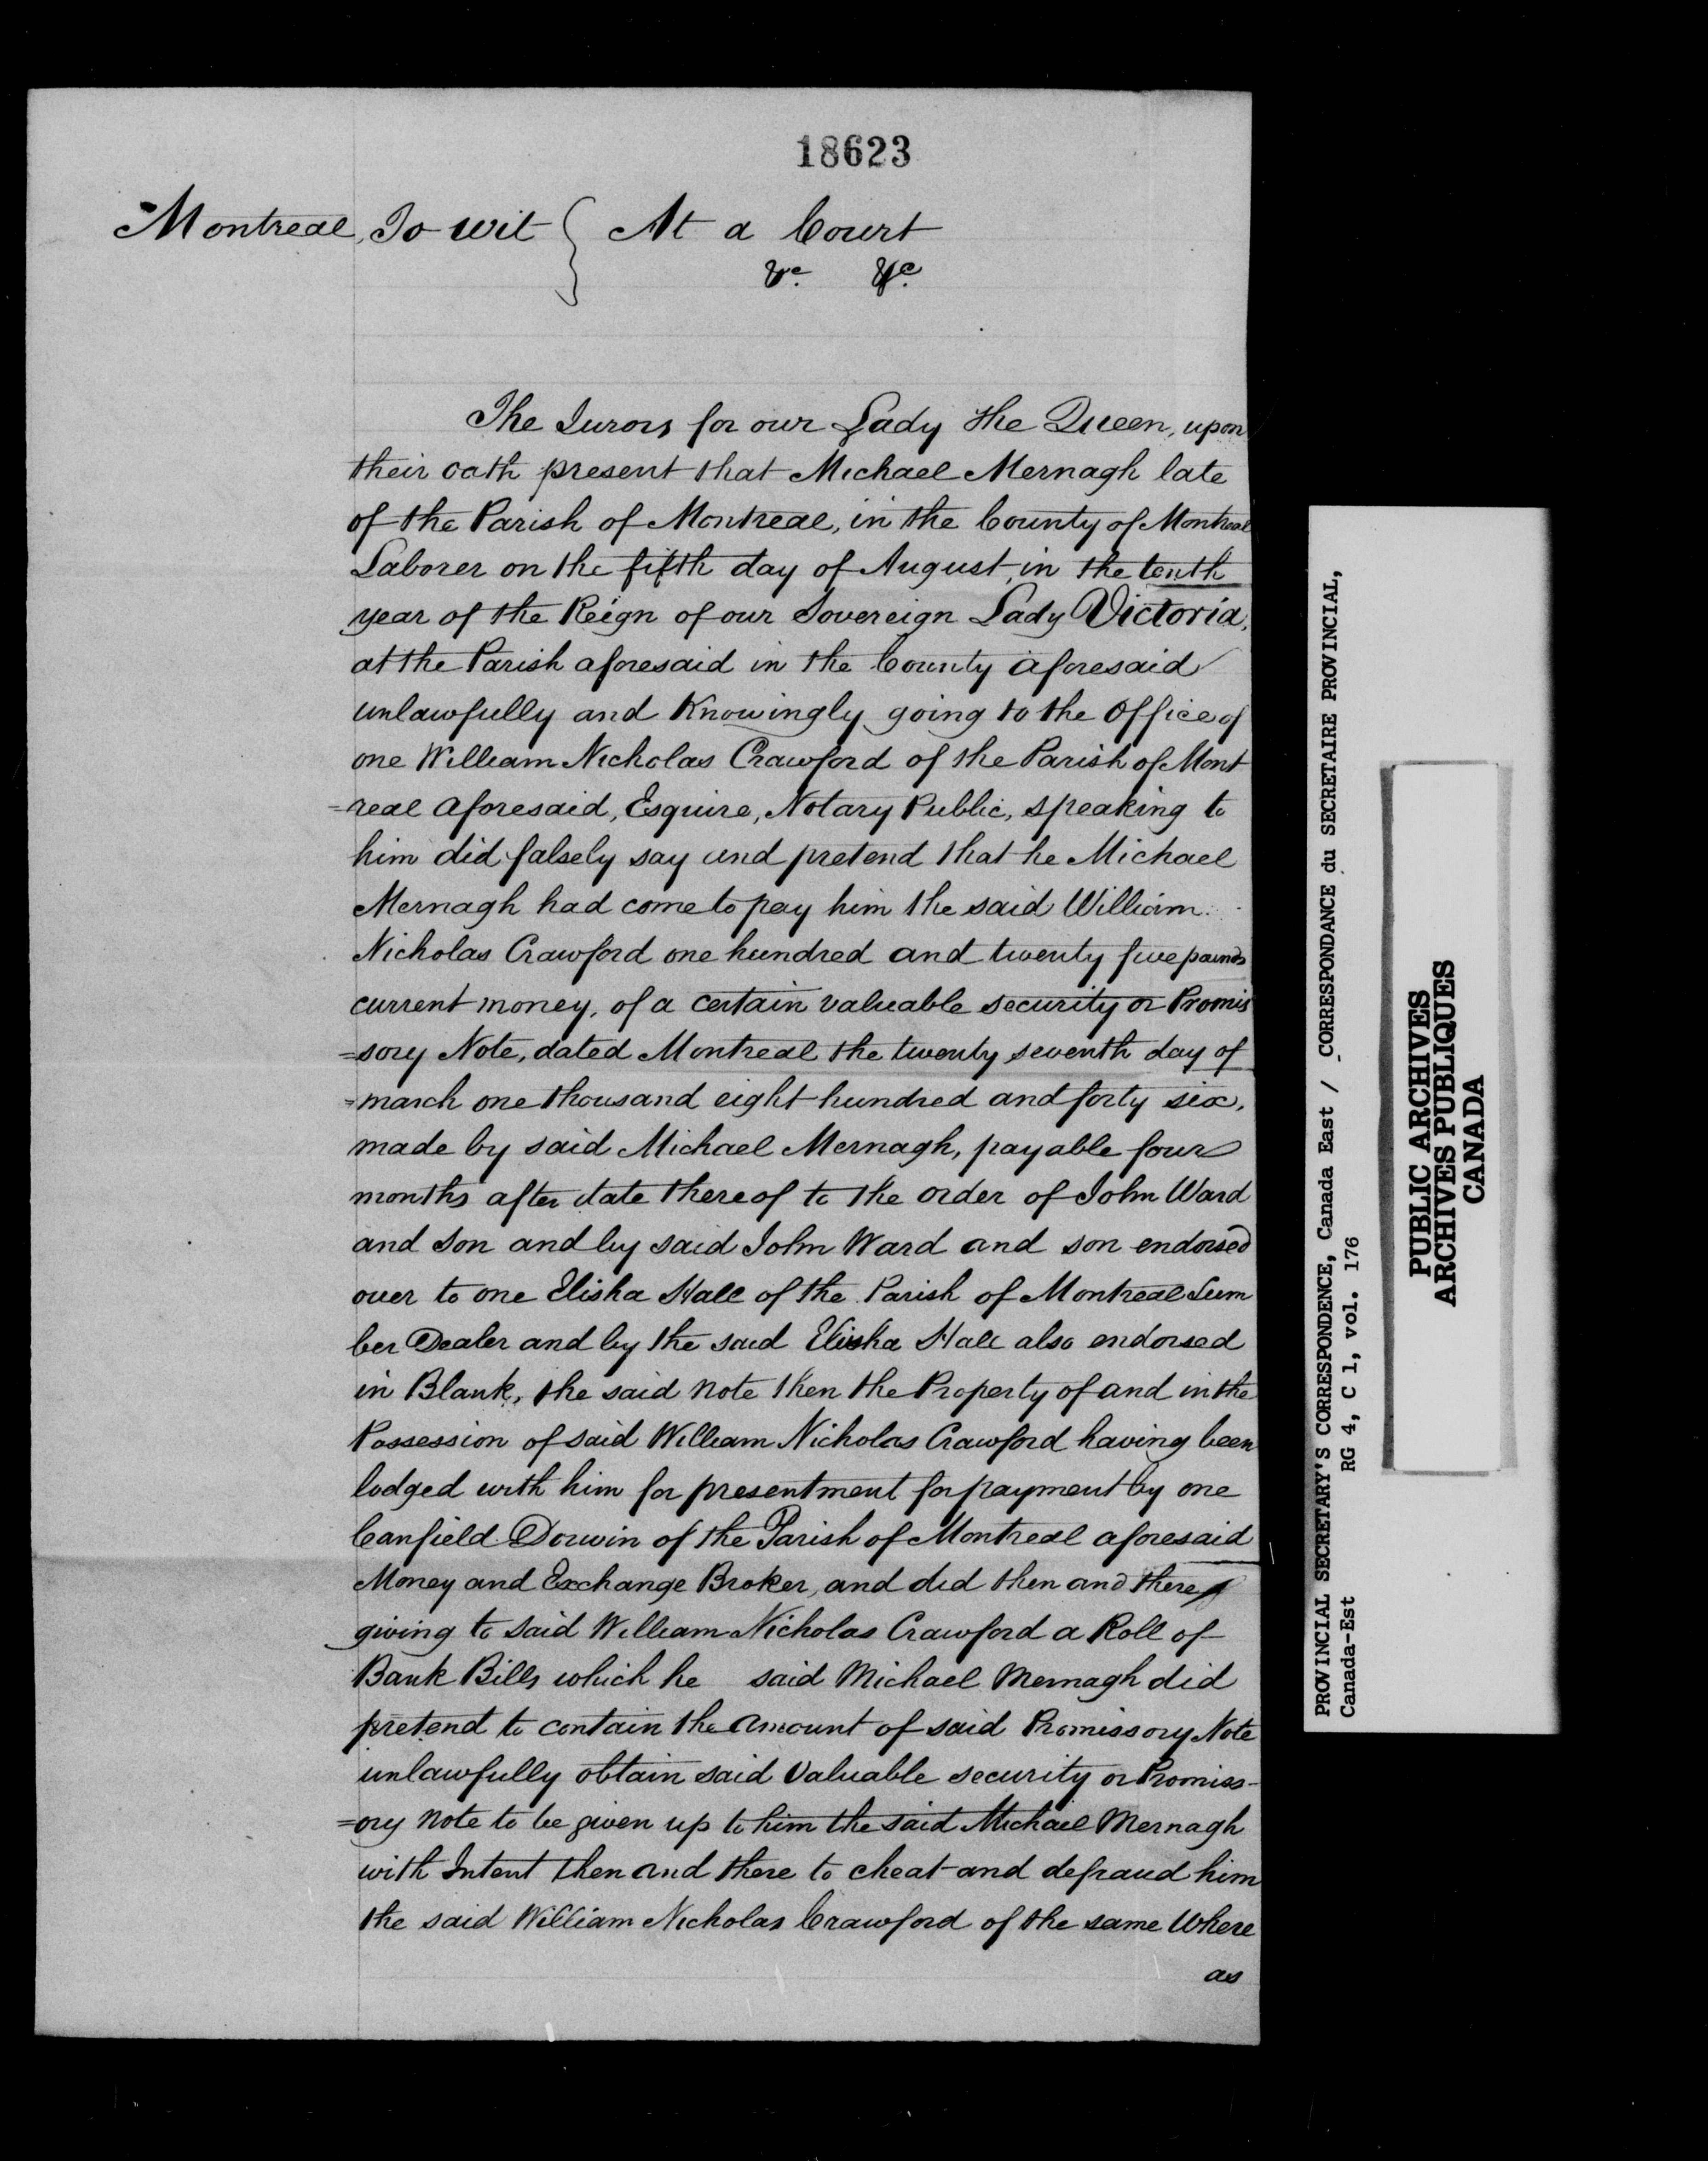 18623
Montreal, To wit { At a Court
&c. &c.
The Jurors for our Lady the Queen, upon
their oath present that Michael Mernagh late
of the Parish of Montreal, in the County of Montreal
Laborer on the fifth day of August, in the tenth
year of the Reign of our Sovereign Lady Victoria,
at the Parish aforesaid in the County aforesaid
unlawfully and Knowingly going to the Office of
one William Nicholas Crawford of the Parish of Mont
=real aforesaid, Esquire, Notary Public, speaking to
him did falsely say and pretend that he Michael
Mernagh had come to pay him the said William
Nicholas Crawford one hundred and twenty five pounds
current money, of a certain valuable security or Promis
=sory Note, dated Montreal the twenty seventh day of
=march one thousand eight hundred and forty six,
made by said Michael Mernagh, payable four
months after date thereof to the order of John Ward
and Son and by said John Ward and son endorsed
over to one Elisha Hall of the Parish of Montreal Lum
ber Dealer and by the said Elisha Hall also endorsed
in Blank, the said note then the Property of and in the
Possession of said William Nicholas Crawford having been
lodged with him for presentment for payment by one
Canfield Dorwin of the Parish of Montreal aforesaid
Money and Exchange Broker, and did then and there
giving to said William Nicholas Crawford a Roll of
Bank Bills which he said Michael Mernagh did
pretend to contain the amount of said Promissory Note
unlawfully obtain said Valuable security or Promiss-
=ory note to be given up to him the said Michael Mernagh
with Intent then and there to cheat and defraud him
the said William Nicholas Crawford of the same Where
as
PROVINCIAL SECRETARY'S CORRESPONDENCE, Canada East / CORRESPONDANCE du SECRETAIRE PROVINCIAL,
Canada-Est RG 4, C 1, vol. 176
PUBLIC ARCHIVES
ARCHIVES PUBLIQUES
CANADA